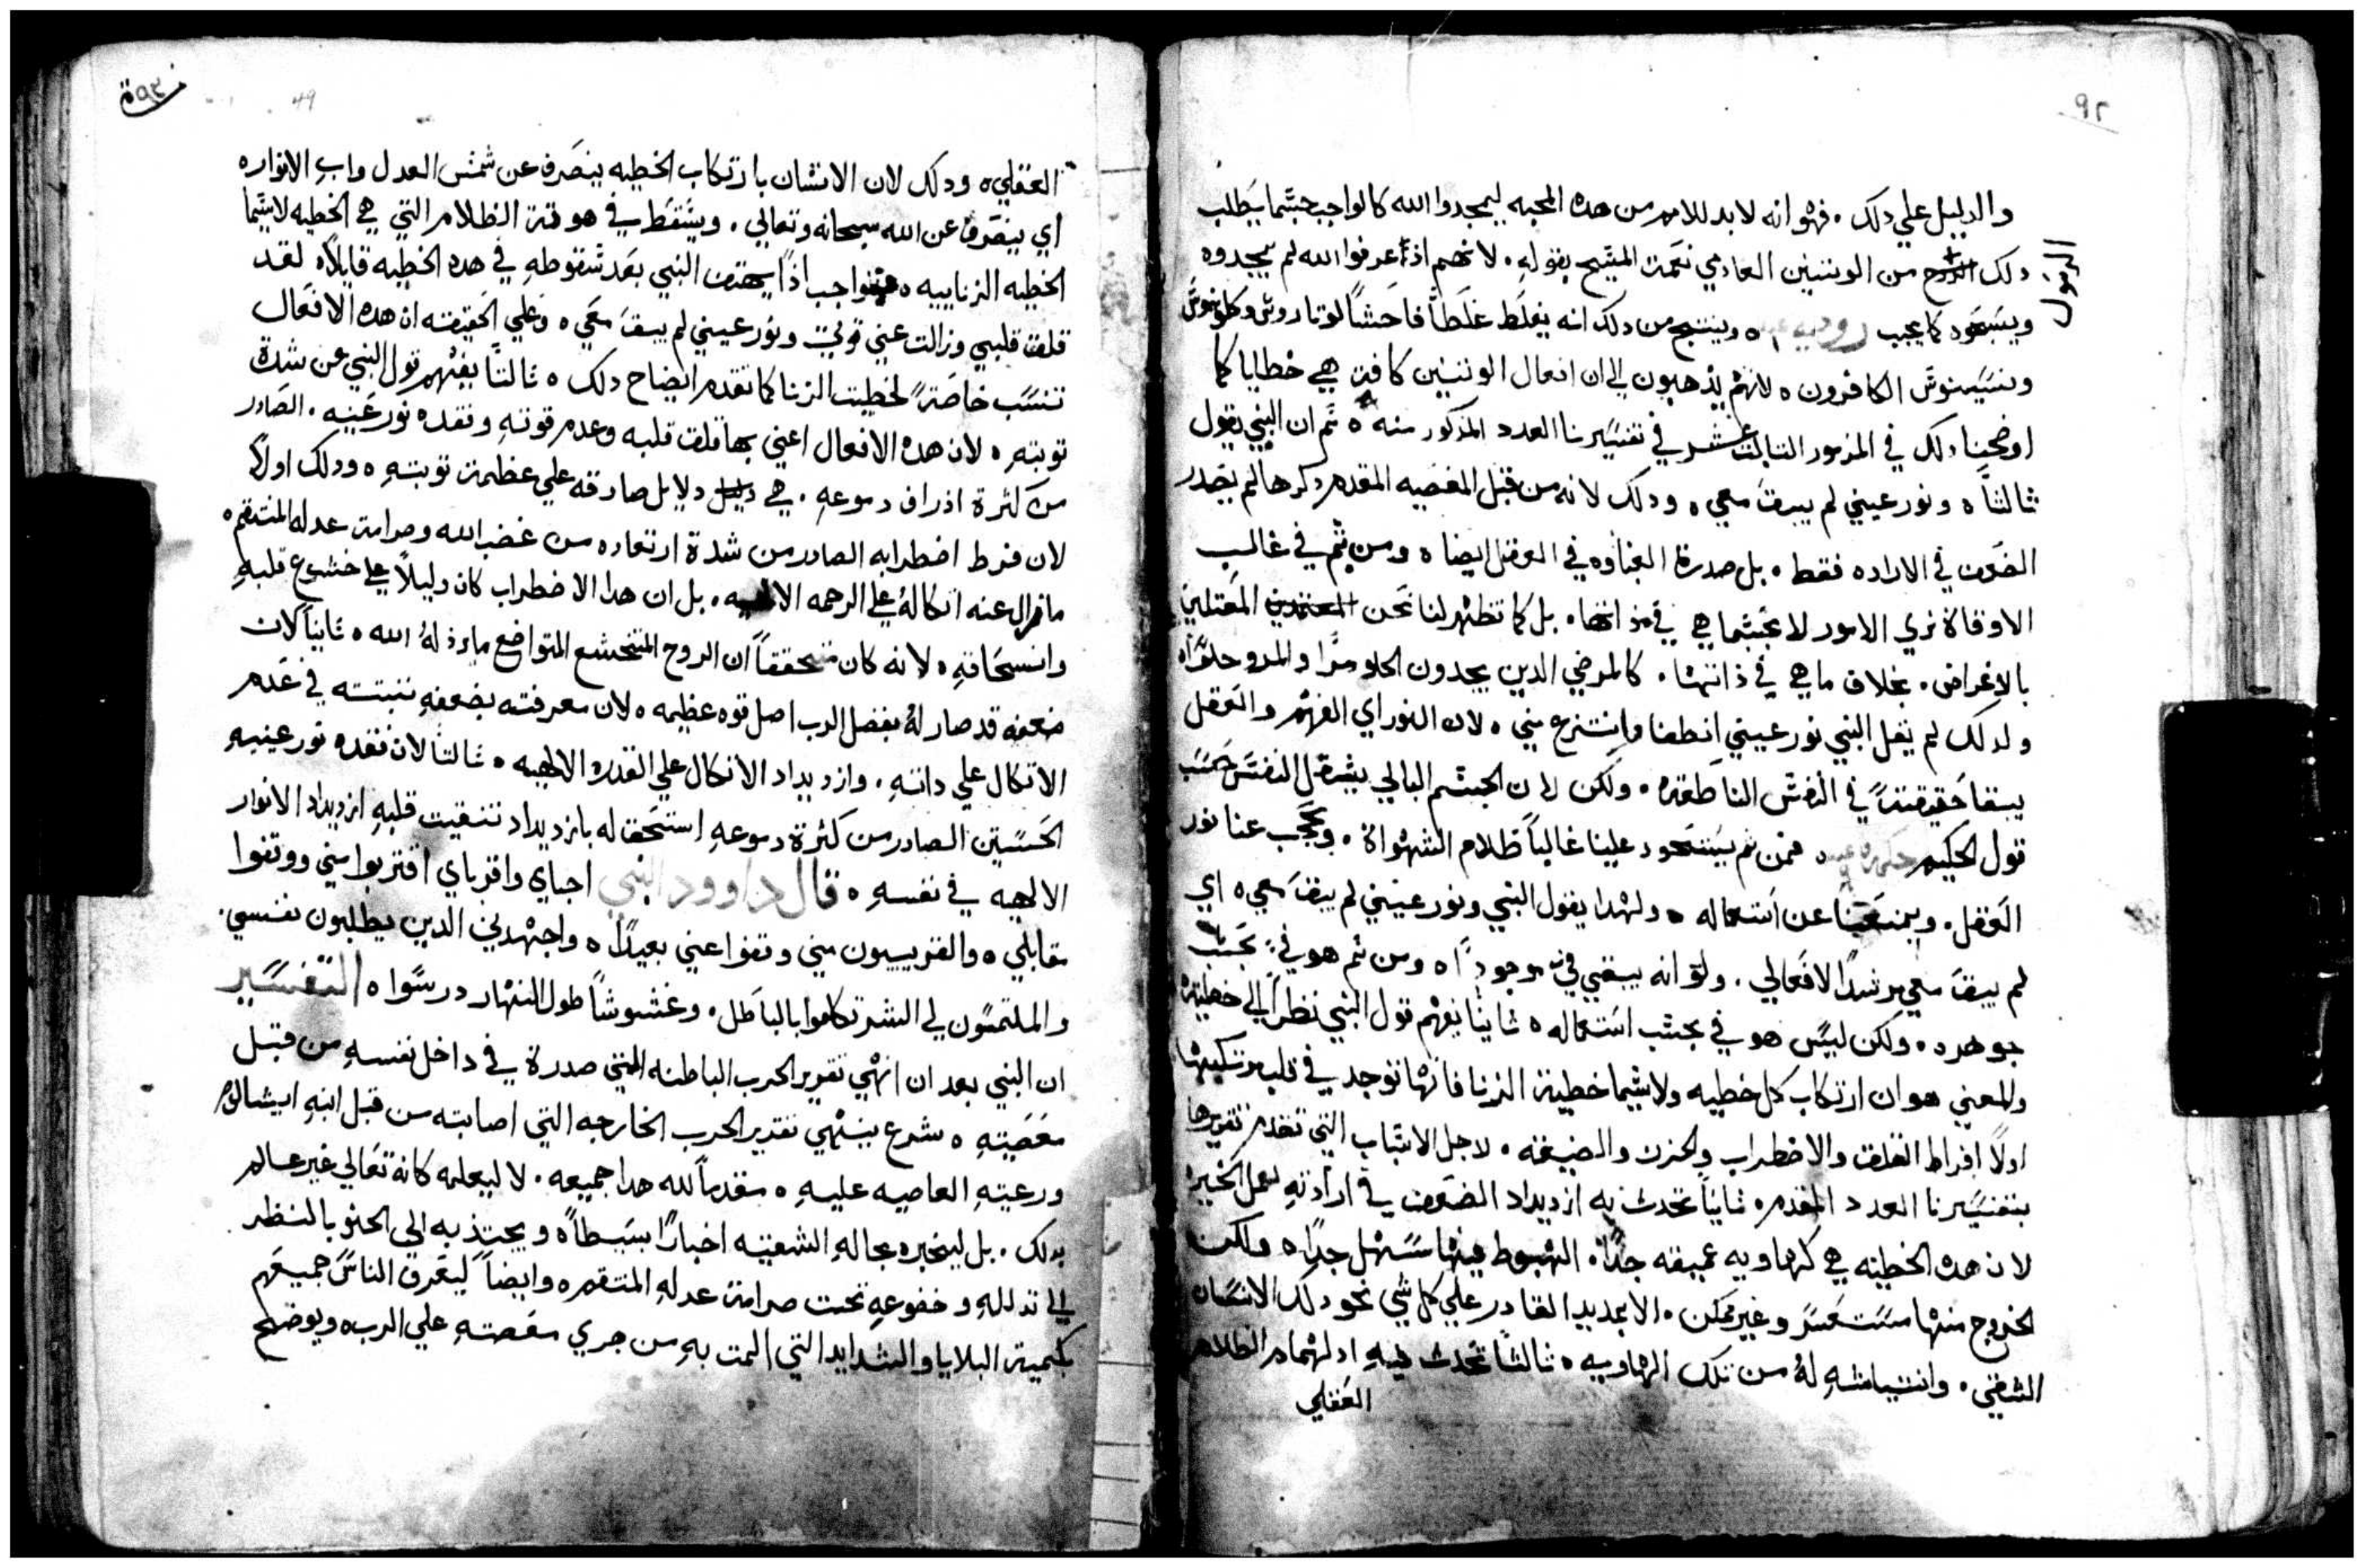 ٩٢
والدليل علي دلك . فهو انه لابد للامم من هده المحبه ليمجدوا الله كالواجب حبتما يتطلب
دلك من الوتنيين العادمي نعمت المسيح بقوله . لانهم اذ عرفوا الله لم يمجدوه
الرسول
ويسجود كما يجب روميه ه وينتج من دلك انه يغلط غلطاً فاحشاً لوتاروش وكلوينوش
وينسينوش الكافرون ه لانهم يذهبون الي ان افعال الوتنيين كافة هي خطايا كما
اوضحنا دلك في المزمور التالت عشر في تفسيرنا العدد المذكور منه ه تم ان النبي يقول
ثالثاً ه ونور عيني لم يبقَ معي ه ودلك لانه من قبل المعصيه المقدم دكرها لم يصدر
الضعف في الاراده فقط . بل صدرة الغباوه في العقل ايضا ه ومن ثم في غالب
الاوقاة نري الامور لا بحبتما هي في ذاتها . بل كما تظهر لنا نحن المعتلين
بالاغراض . بخلاف ما هي في ذاتها . كالمرضي الدين يجدون الحلو مرًا والمرو حلوًا ه
ولدلك لم يقل النبي نور عيني انطفا وانتزع مني ه لان النور اي الفهم والعقل
يبقا حقيقتاً في النفس الناطقه . ولكن لان الجسم البالي يثقل النفس حسب
قول الحكيم حكمه ه فمن ثم يستحود علينا غالباً ظلام الشهواة . ويحجب عنا نور
العقل . ويمنعنا عن استعماله ه ولهدا يقول النبي ونور عيني لم يبقَ معي ه اي
لم يبقَ معي مرشدًا لافعالي . ولو انه يبقي فيّ موجودًا ه ومن ثم هو فيّ بحسب
جوهره . ولكن ليس هو فيّ بحسب استعماله ه ثانياً يفهم قول النبي نظراً الي خطيته
والمعني هو ان ارتكاب كل خطيه ولا سيما خطية الزنا فانها توجد في قلب مرتكبها
اولًا افراط القلق والاضطراب والحزن والضيقه . لاجل الاسباب التي تقدم تقريرها
بتفسيرنا العدد المقدم ه ثانياً تحدث به ازدياد الضعف في ارادته لعمل الخير ه
لان هده الخطيه هي كهاويه عميقه جدًا . الهبوط فيها سهل جدًا ه ولكن
الخروج منها مستعسر وغير ممكن . الا بمد يد القادر علي كل شي نحو دلك الانسان
الشقي . وانتياشه لهُ من تلك الهاويه ه ثالثاً تحدث فيه ادلهمام الظلام
العقلي
٩٣
49
العقلي ه ودلك لان الانسان بارتكاب الخطيه ينصرف عن شمس العدل واب الانوار ه
اي ينصرف عن الله سبحانه وتعالي . ويسقط في هوة الظلام التي هي الخطيه لاسيما
الخطيه الزناييه ه فبواجب اذاً يهتف النبي بعد سقوطه في هده الخطيه قايلًا ه لقد
قلق قلبي وزالت عني قوتي ونور عيني لم يبقَ معي ه وعلي الحقيقه ان هده الافعال
تنسب خاصةً لخطيت الزنا كما تقدم ايضاح دلك ه ثالثاً يفهم قول النبي عن شدة
توبته ه لان هده الافعال اعني بها قلق قلبه وعدم قوته وفقده نور عينه . الصادر
من كثرة اذراف دموعه . هي دلايل صادقه علي عظمة توبته ه ودلك اولًا
لان فرط اضطرابه الصادر من شدة ارتعاده من غضب الله وصرامة عدله المنتقم ه
ما ازال عنه اتكالهُ علي الرحمه الالهيه . بل ان هدا الاضطراب كان دليلًا علي خشوع قلبه
وانسحاقه ه لانه كان متحققاً ان الروح المتخشع المتواضع ما يرذلهُ الله ه ثانياً لان
ضعفه قد صار لهُ بفضل الرب اصل قوه عظيمه ه لان معرفته بضعفه تثبته في عدم
الاتكال علي داته . وازدياد الاتكال علي القدره الالهيه ه ثالثاً لان فقده نور عينيه
الحسيتين الصادر من كثرة دموعه استحق له بازدياد تنقيت قلبه ازدياد الانوار
الالهيه في نفسه ه قال داوود النبي احباي واقرباي اقتربوا مني ووقفوا
مقابلي ه والقريبيون مني وقفوا عني بعيدًا ه واجتهد الدين يطلبون نفسي .
والملتمسون لي الشر تكلموا بالباطل . وغشوشاً طول النهار درسوا ه التفسير
ان النبي بعد ان انهي تقرير الحرب الباطنه التي صدرة في داخل نفسه من قبل
معصيته ه شرع ينهي تقرير الحرب الخارجه التي اصابته من قبل ابنه ابيشالوم
ورعيته العاصيه عليه ه مقدماً لله هدا جميعه . لا ليعلمه كانه تعالي غير عالم
بدلك . بل ليخبره بحاله الشقيه اخبارًا بسيطاً ه ويجتذبه الي الحنو بالنظر
الي تدلله وخضوعه تحت صرامة عدله المنتقم ه وايضاً ليعرف الناس جميعهم
بكمية البلايا والشدايد التي المت به من جري معصته علي الرب ه ويوضح